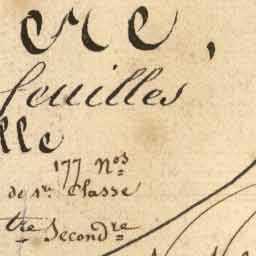 ere,
feuilles
lle
177 Nos
de 1re Classe
tre Secondre